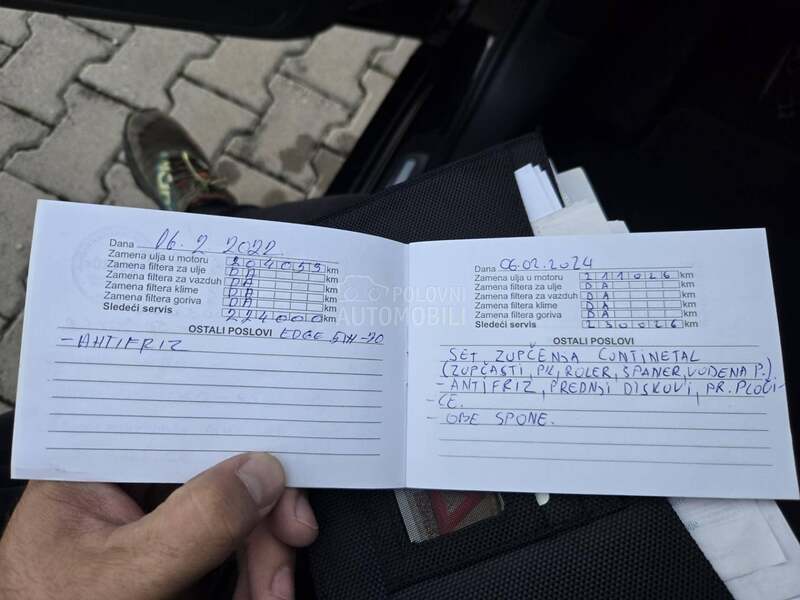 Dana 06. 2 2022.
Zamena ulja u motoru 204055 km
Zamena filtera za ulje DA
Zamena filtera za vazduh DA km
Zamena filtera klime DA km
Zamena filtera goriva DA km
Sledeći servis 224000 km
OSTALI POSLOVI EDGE 5W-30
-ANTIFRIZ
Dana 06.02.2024
Zamena ulja u motoru 211026 km
Zamena filtera za ulje DA km
Zamena filtera za vazduh DA km
Zamena filtera klime DA km
Zamena filtera goriva DA km
Sledeći servis 230026 km
OSTALI POSLOVI
SET ZUPČENJA CONTINETAL
(ZUPČASTI, PK, ROLER, ŠPANER, VODENA P.)
-ANTIFRIZ, PREDNJI DISKOVI, PR. PLOČI-
CE.
- OBE SPONE.
POLOVNI
AUTOMOBILI